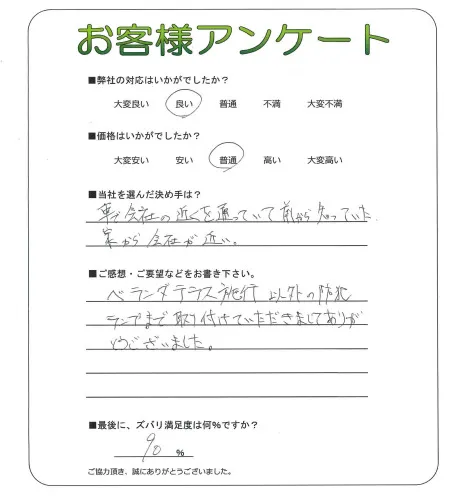 お客様アンケート
■弊社の対応はいかがでしたか？
大変良い 良い 普通 不満 大変不満
■価格はいかがでしたか？
大変安い 安い 普通 高い 大変高い
■当社を選んだ決め手は？
車で会社の近くを通っていて前から知っていた.
家から会社が近い。
■ご感想・ご要望などをお書き下さい。
ベランダテラス施行 以外の防犯
ランプまで取り付けていただきましてありが
とうございました。
■最後に、ズバリ満足度は何%ですか？
90 %
ご協力頂き、誠にありがとうございました。